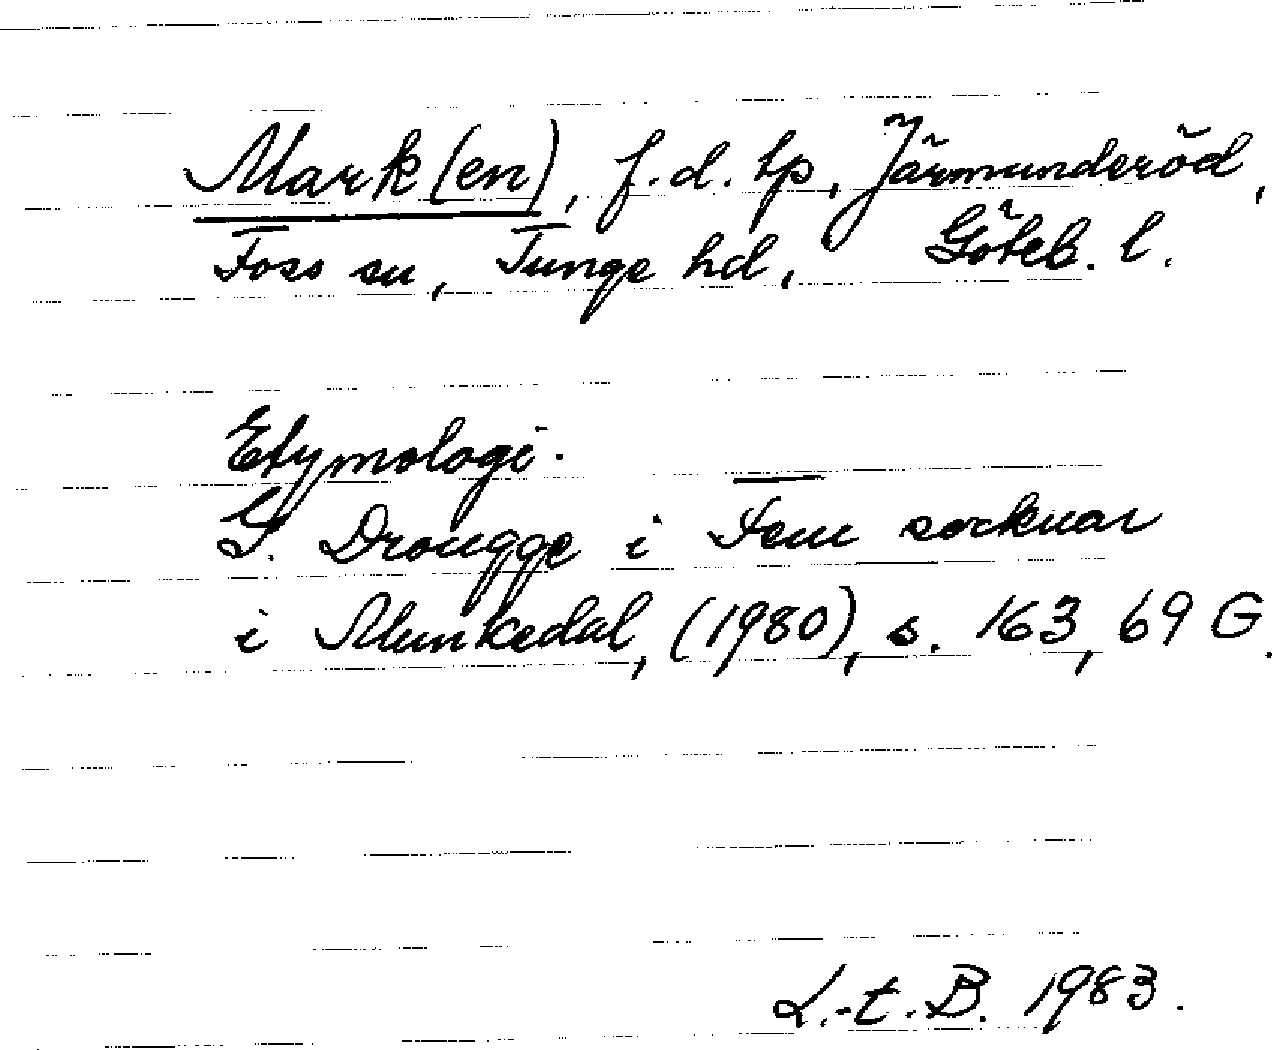 Mark(en), f.d. tp, Järmunderöd,
Foss sn, Tunge hd, Göteb. l.
Etymologi.
G. Drougge i Fem socknar
i Munkedal, (1980), s. 163, 69 G.
L.-t. B. 1983.